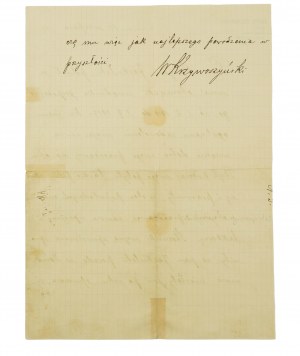 czę mu więc jak najlepszego powodzenia w
przyszłości.
W Krzywoszyński